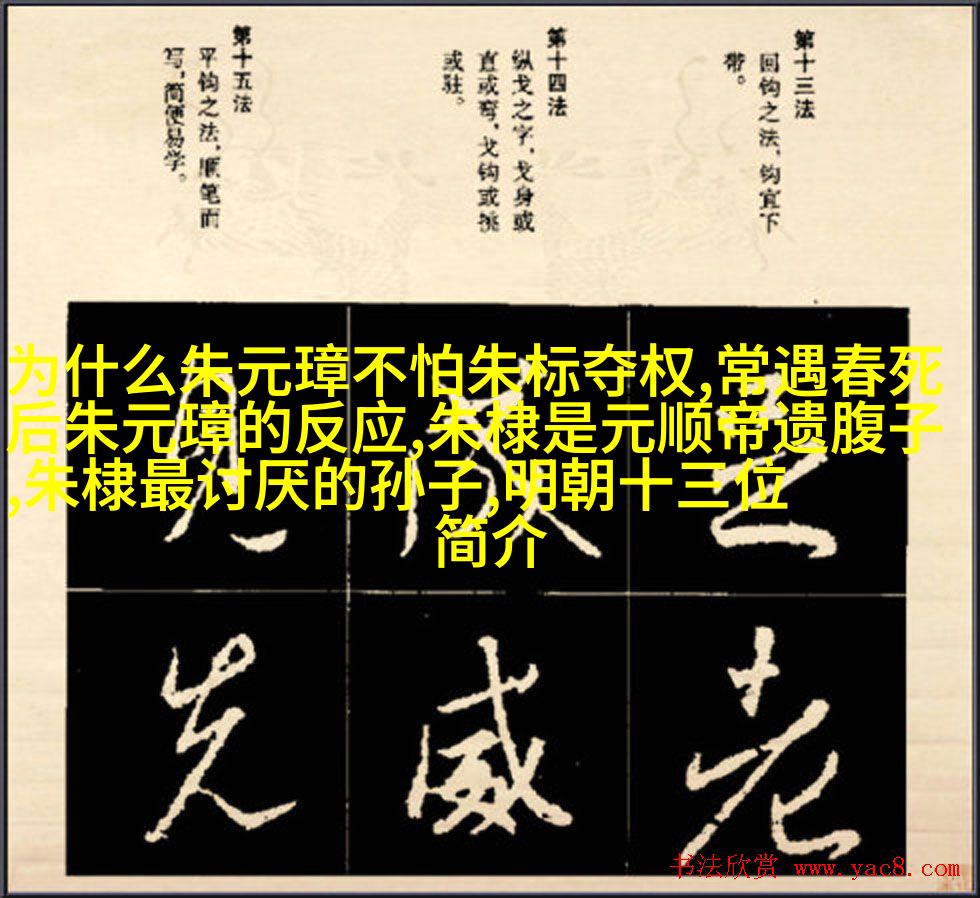 第十三法
回钩之法，钩宜下
带。
第十四法
纵戈之字，戈身或
直或弯，戈钩或挑
或驻。
第十五法
平钩之法，顺笔而
写，简便易学。
为什么朱元璋不怕朱标夺权,常遇春死
后朱元璋的反应,朱棣是元顺帝遗腹子
,朱棣最讨厌的孙子,明朝十三位
简介
见
岂
先 威 老
书法欣赏 www.yac8.com